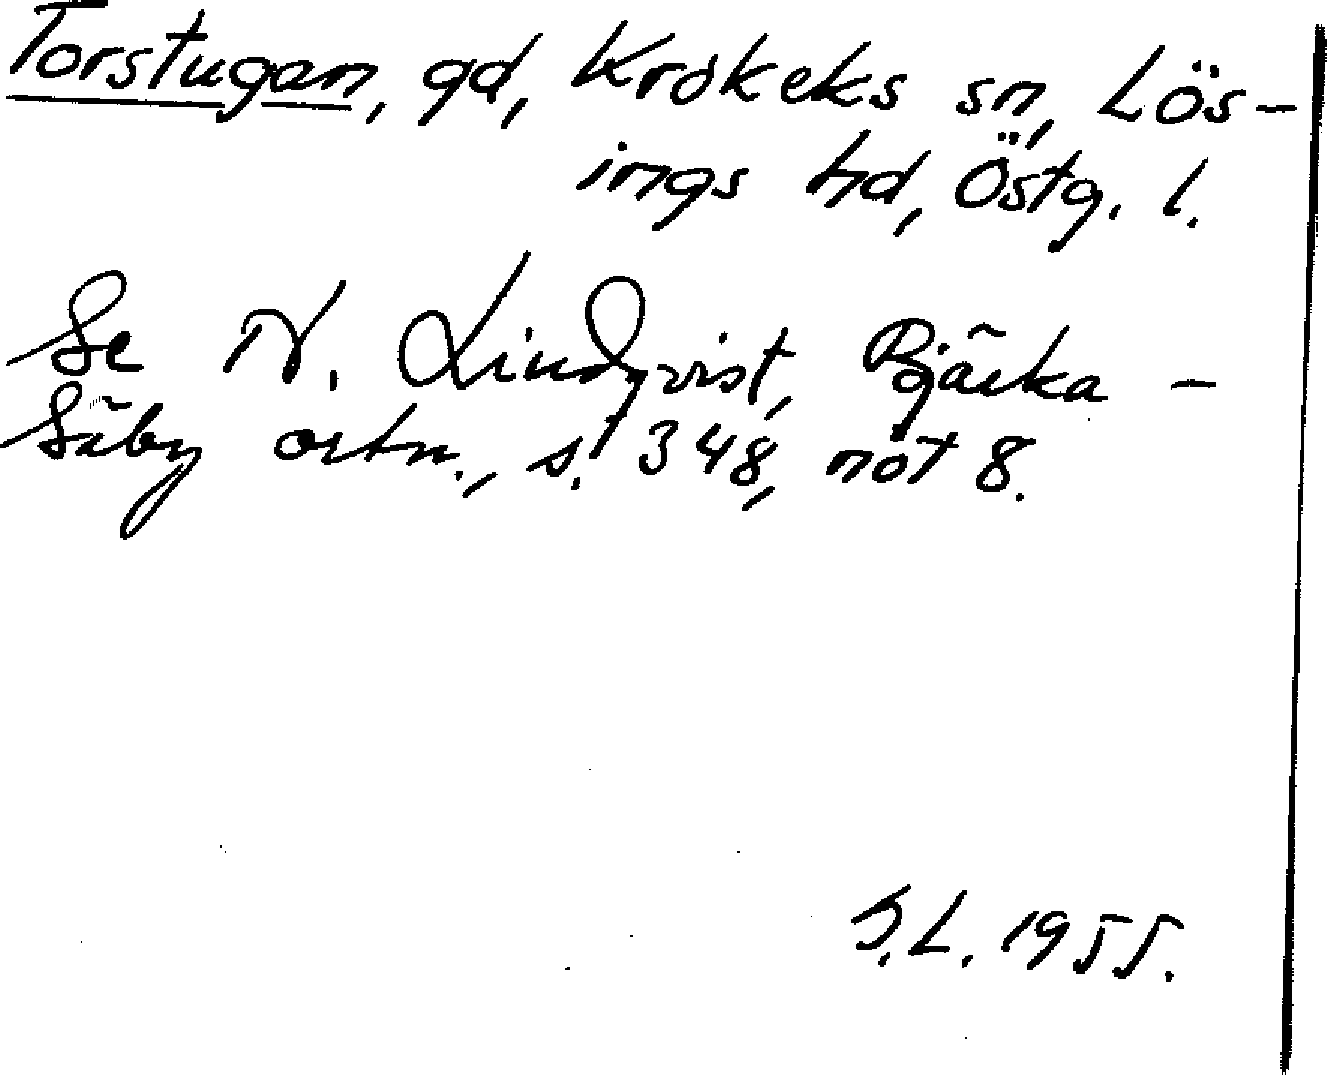 Torstugan, gd, Krokeks sn, Lös-
ings hd, Östg. l.
Se N. Lindqvist, Bjärka-
Säby ortn., s. 348, not 8.
S.L. 1955.